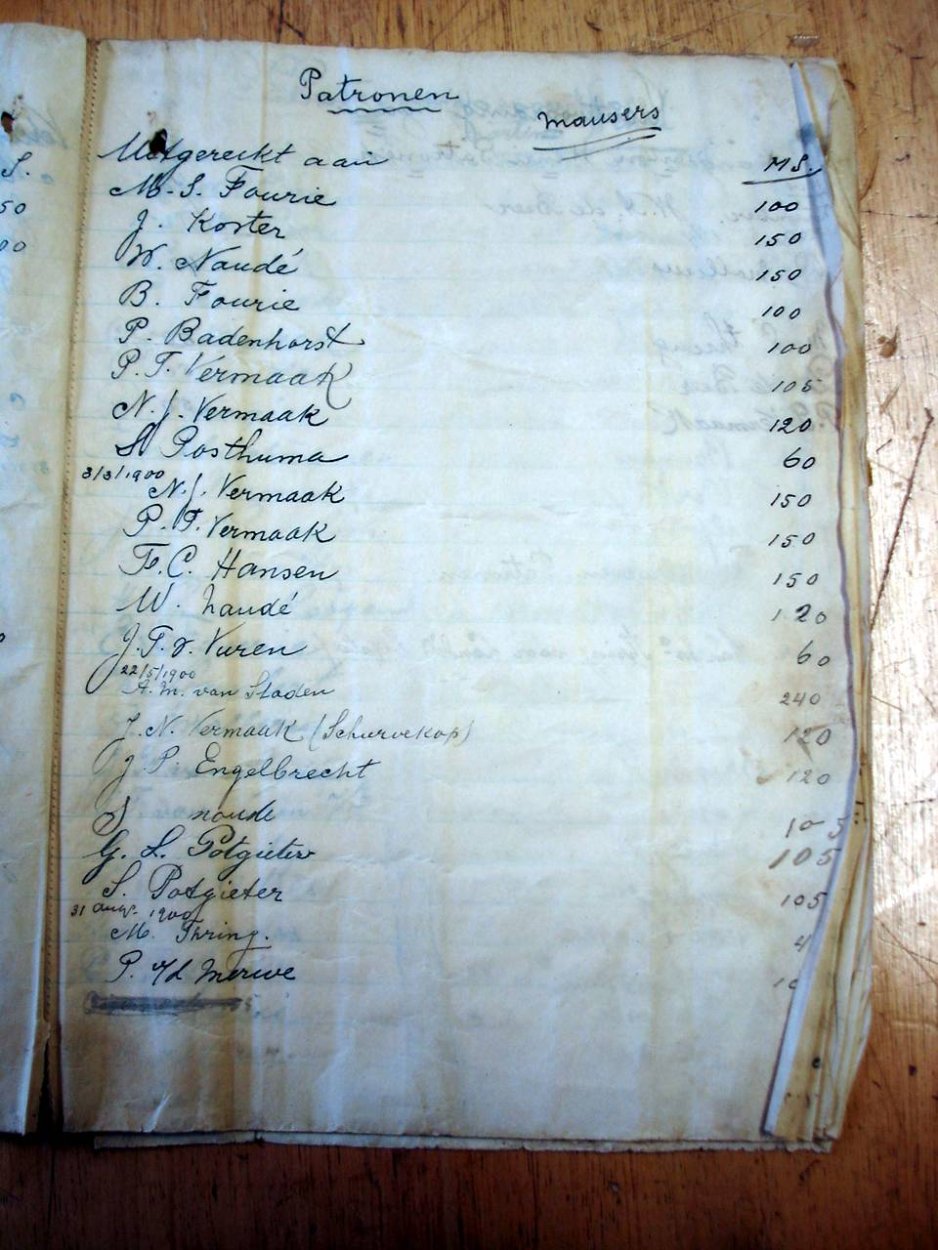 Patronen
Mausers
Uitgereikt aan M S.
M. S. Fourie 100
J. Koster 150
W. Naudé 150
B. Fourie 100
P. Badenhorst 100
P. T. Vermaak 105
N. J. Vermaak 120
S Posthuma 60
3/3/1900
N. J. Vermaak 150
P. T. Vermaak 150
F. C. Hansen 150
W. Naudé 120
J. T. v. Vuren 60
22/5/1900
A. M. van Staden 240
J. N. Vermaak (Schurvekop) 120
J. P. Engelbrecht 120
S naude 105
G. L. Potgieter 105
S. Potgieter 105
31 Aug. 1900
M. Thring. 4
P. v/d Merwe 10